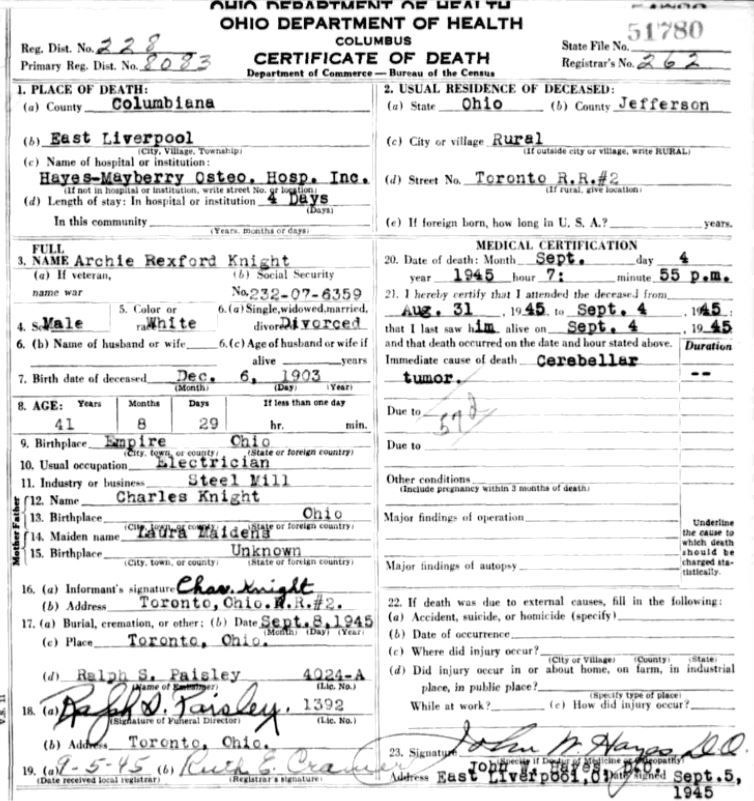 OHIO DEPARTMENT OF HEALTH
OHIO DEPARTMENT OF HEALTH
COLUMBUS
CERTIFICATE OF DEATH
Department of Commerce — Bureau of the Census
Reg. Dist. No. 228
Primary Reg. Dist. No. 8083
51780
State File No.
Registrar's No. 262
1. PLACE OF DEATH:
(a) County Columbiana
(b) East Liverpool
(City, Village, Township)
(c) Name of hospital or institution:
Hayes-Mayberry Osteo. Hosp. Inc.
(If not in hospital or institution, write street No. or location)
(d) Length of stay: In hospital or institution 4 Days
(Days)
In this community
(Years, months or days)
2. USUAL RESIDENCE OF DECEASED:
(a) State Ohio (b) County Jefferson
(c) City or village Rural
(If outside city or village, write RURAL)
(d) Street No. Toronto R.R.#2
(If rural, give location)
(e) If foreign born, how long in U. S. A.? years.
FULL
3. NAME Archie Rexford Knight
(a) If veteran, (b) Social Security
name war No. 232-07-6359
5. Color or 6. (a) Single, widowed, married,
4. Sex Male race White divorced Divorced
6. (b) Name of husband or wife 6. (c) Age of husband or wife if
alive years
7. Birth date of deceased Dec. 6, 1903
(Month) (Day) (Year)
8. AGE: Years Months Days If less than one day
41 8 29 hr. min.
9. Birthplace Empire Ohio
(City, town, or county) (State or foreign country)
10. Usual occupation Electrician
11. Industry or business Steel Mill
Father
12. Name Charles Knight
13. Birthplace Ohio
(City, town, or county) (State or foreign country)
Mother
14. Maiden name Laura Maidens
15. Birthplace Unknown
(City, town, or county) (State or foreign country)
16. (a) Informant's signature Chas. Knight
(b) Address Toronto, Ohio. R.R.#2.
17. (a) Burial, cremation, or other; (b) Date Sept. 8, 1945
(Month) (Day) (Year)
(c) Place Toronto, Ohio.
(d) Ralph S. Paisley 4024-A
(Name of Embalmer) (Lic. No.)
18. (a) Ralph S. Paisley. 1392
(Signature of Funeral Director) (Lic. No.)
(b) Address Toronto, Ohio.
19. (a) 9-5-45 (b) Ruth E. Cramer
(Date received local registrar) (Registrar's signature)
V.S. 11
MEDICAL CERTIFICATION
20. Date of death: Month Sept. day 4
year 1945 hour 7: minute 55 p.m.
21. I hereby certify that I attended the deceased from
Aug. 31, 1945 to Sept. 4, 1945:
that I last saw him alive on Sept. 4, 1945
and that death occurred on the date and hour stated above.
Duration
Immediate cause of death Cerebellar
tumor. --
Due to
57d
Due to
Other conditions
(Include pregnancy within 3 months of death)
Major findings of operation
Major findings of autopsy
Underline
the cause to
which death
should be
charged sta-
tistically.
22. If death was due to external causes, fill in the following:
(a) Accident, suicide, or homicide (specify)
(b) Date of occurrence
(c) Where did injury occur?
(City or Village) (County) (State)
(d) Did injury occur in or about home, on farm, in industrial
place, in public place?
(Specify type of place)
While at work? (e) How did injury occur?
23. Signature John W. Hayes D.O.
(Specify if Doctor of Medicine or Osteopathy)
John W. Hayes D.O.
Address East Liverpool, O. Date signed Sept. 5,
1945